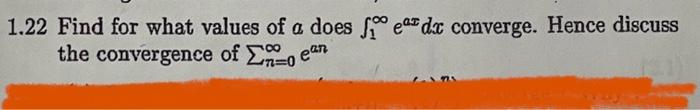 1.22 Find for what values of a does ∫₁^∞ e^{ax} dx converge. Hence discuss
the convergence of ∑_{n=0}^∞ e^{an}